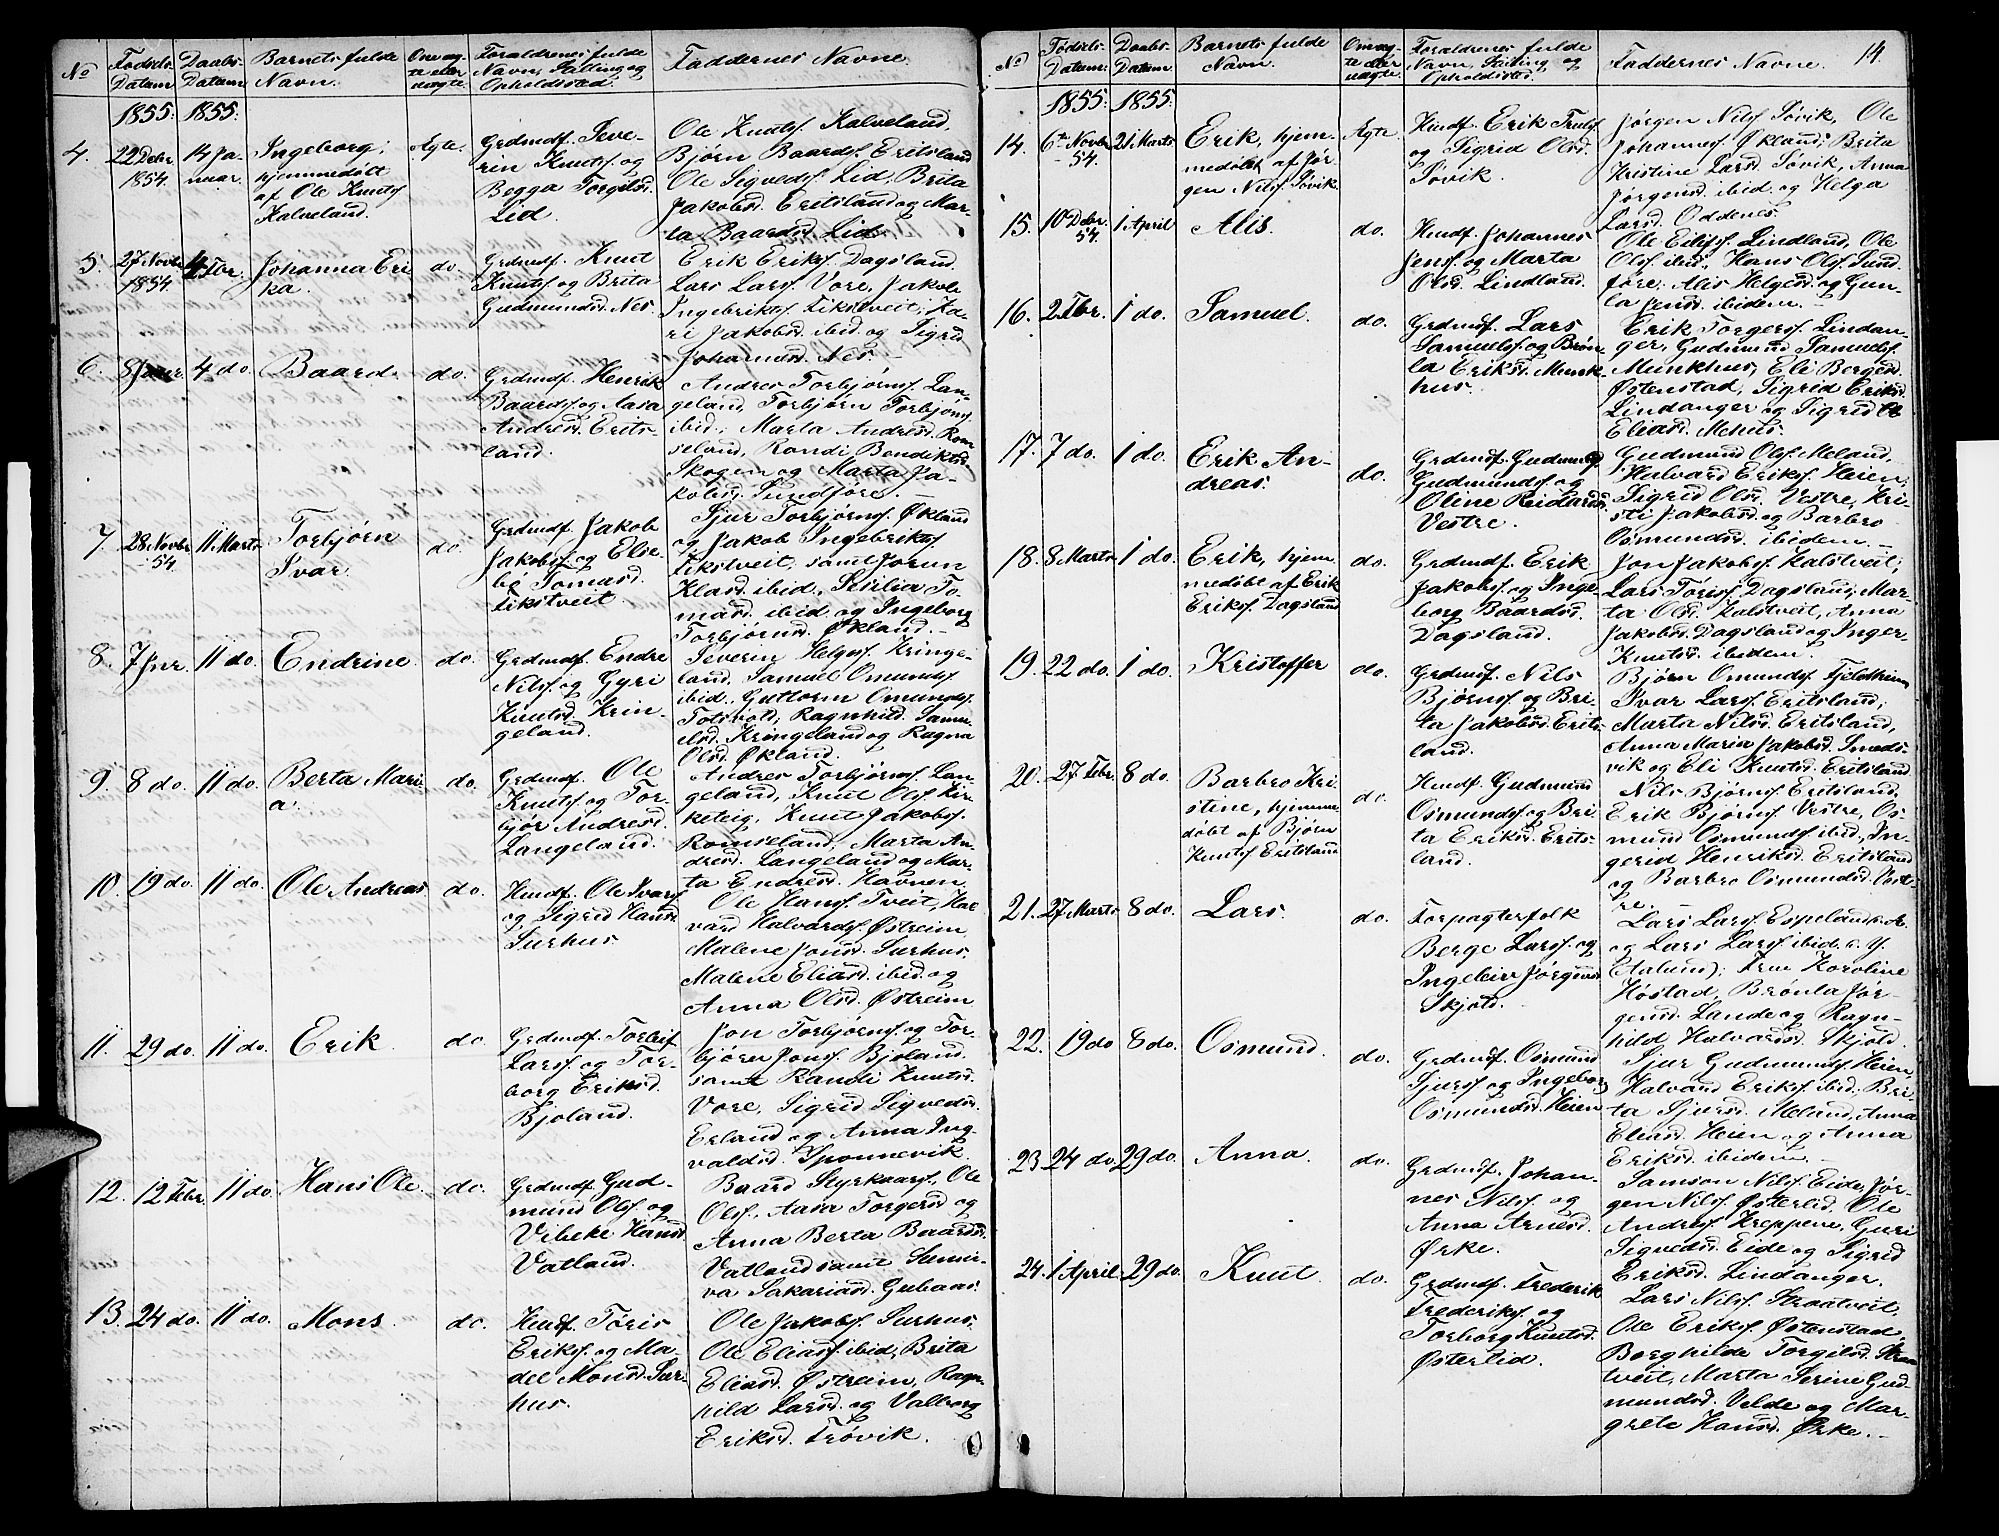 No
Fødsels
Datum
Daabs-
Datum
Barnets fulde
Navn.
Om æg-
te eller
uægte.
Forældrenes fulde
Navn, Stilling og
Opholdssted.
Faddernes Navne.
1855. 1855.
4.
22 Debr
1854.
14 Ja-
nuar.
Ingeborg,
hjemmedøbt
af Ole Knuts
Kalveland.
Ægte.
Grdmdf. Seve-
rin Knuts. og
Begga Torgilsd.
Lid.
Ole Knuts. Kalveland,
Bjørn Baards. Eritsland
Ole Sigveds. Lid, Brita
Jakobsd. Eritsland og Mar-
ta Baardsd. Lid.
5.
27 Novbr
1854.
4 Fbr.
Johanna Eri
ka.
do.
Grdmdf. Knut
Knuts. og Brita
Gudmundsd. Nes.
Erik Eriks. Dagsland.
Lars Lars. Vore, Jakob
Ingebrikts. Fikstveit, Ka-
ri Jakobsd. ibid og Sigrid
Johannesd. Nes.
6.
8 Januar
4 do.
Baard.
do.
Grdmdf. Henrik
Baards. og Aasa
Andresd. Erits-
land.
Andres Torbjørns. Lan-
geland, Torbjørn Torbjørns.
ibid., Marta Andresd. Rom
seland, Randi Bendiktsd.
Skogen og Marta Ja-
kobsd. Sundføre.
7
28 Novbr
-54.
11 Marts
Torbjørn
Ivar.
do.
Grdmdf. Jakob
Jakobs. og Elsa-
be Tomasd.
Fikstveit.
Sjur Torbjørns. Økland
og Jakob Ingebrikts.
Fikstveit, samt Jorun
Klasd. ibid, Sesilia To-
masd. ibid og Ingeborg
Torbjørnsd. Økland.
8.
7 Jnr.
11 do.
Endrine.
do.
Grdmdf. Endre
Nils. og Gyri
Knutsd. Krin-
geland.
Severin Helges. Kringe-
land, Samuel Omunds.
ibid., Guttorm Omunds.
Totsvold, Ragnhild Samu-
elsd. Kringeland og Ragna
Olsd. Økland.
9.
8 do.
11 do.
Berta Mari-
a.
do.
Grdmdf. Ole
Knuts. og Tor-
bjør Andresd.
Langeland.
Andres Torbjørns. Lan-
geland, Knut Ols. Kir-
keteig, Knut Jakobs.
Romseland, Marta An-
dresd. Langeland og Mar-
ta Endresd. Havnen.
10.
19 do.
11 do.
Ole Andreas
do.
Husdf. Ole Ivars.
og Sigrid Hansd.
Surhus.
Ole Hans. Tveit, Hal
vard Halvards. Østreim
Malene Jonsd. Surhus.
Malene Eliasd. ibid. og
Anna Olsd. Østreim
11.
29 do.
11 do.
Erik.
do.
Grdmdf. Torleif
Lars. og Tor-
borg Eriksd.
Bjoland.
Jon Torbjørns. og Tor-
bjørn Jons. Bjoland.
samt Randi Knutsd.
Vore, Sigrid Sigvedsd.
Erland og Anna Ing-
valdsd. Sponnevik.
12.
12 Febr.
11 do.
Hans Ole.
do.
Grdmdf. Gud-
mund Ols. og
Vibeke Hansd.
Vatland.
Baard Styrkaars., Ole
Ols., Aasa Torgersd. og
Anna Berta Baardsd.
Vatland samt Sunni-
va Sakariasd. Gubaas.
13.
24 do.
11 do.
Mons.
do.
Husdf. Tøris
Eriks. og Ma-
del Monsd. Sur-
hus.
Ole Jakobs. Surhus.
Ole Elias. ibid, Brita
Eliasd. Østreim, Ragn-
hild Larsd. og Valborg
Eriksd. Frøvik.
14.
No
Fødsels
Datum.
Daabs-
Datum.
Barnets fulde
Navn.
Om æg-
te eller
uægte.
Forældrenes fulde
Navn, Stilling og
Opholdssted.
Faddernes Navne.
1855. 1855.
14.
6te Novbr
-54.
21 Marts
Erik, hjem-
medøbt af Jør-
gen Nils. Søvik.
Ægte
Husdf. Erik Truls.
og Sigrid Olsd.
Søvik.
Jørgen Nils. Søvik, Ole
Johannes. Økland, Brita
Kristine Larsd. Søvik, Anna
Jørgensd. ibid. og Helga
Larsd. Oddenes.
15.
10 Debr.
54.
1 April
Alis.
do.
Husdf. Johannes
Jens. og Marta
Olsd. Lindland.
Ole Eilifs. Lindland, Ole
Ols. ibid., Hans Ols. Sund
føre, Alis Helgesd. og Gun-
la Jensd. ibidem.
16.
2 Fbr.
1 do.
Samuel.
do.
Grdmdf. Lars
Samuels. og Brøn-
la Eriksd. Munk-
hus.
Erik Torgers. Lindan-
ger, Gudmund Samuels.
Munkhus, Eli Bergesd.
Østenstad, Sigrid Eriksd.
Lindanger og Sigrid
Eliasd. Mehus.
17.
7 do.
1 do.
Erik An-
dreas.
do.
Grdmdf. Gudmund
Gudmunds. og
Oline Reidarsd.
Vestre.
Gudmund Ols. Meland,
Halvard Eriks. Heien,
Sigrid Olsd. Vestre, Kri-
sti Jakobsd. og Barbro
Osmundsd. ibidem.
18.
8 Marts
1 do.
Erik, hjem
medøbt af Erik
Eriks. Dagsland
do.
Grdmdf. Erik
Jakobs. og Inge-
borg Baardsd.
Dagsland.
Jon Jakobs. Kalstveit,
Lars Toris. Dagsland, Mar-
ta Olsd. Kalstveit, Anna
Jakobsd. Dagsland og Inger
Knutsd. ibidem.
19.
22 do.
1 do.
Kristoffer
do.
Grdmdf. Nils
Bjørns. og Bri-
ta Jakobsd. Erits-
land.
Bjørn Omunds. Fjeldheim
Ivar Lars. Eritsland,
Marta Nilsd. Eritsland,
Anna Maria Jakobsd. Smeds-
vik og Eli Knutsd. Eritsland
20.
27 Febr.
8 do.
Barbro Kri-
stine, hjemme
døbt af Bjørn
Knuts. Eritsland
do.
Husdf. Gudmund
Osmunds. og Bri-
ta Eriksd. Erits-
land.
Nils Bjørns. Eritsland,
Erik Bjørns. Vestre, Os-
mund Osmunds. ibid., In-
gerid Henriksd. Eritsland
og Barbro Osmundsd. Vest-
re.
21.
27 Marts
8 do.
Lars.
do.
Forpagterfolk
Berge Lars. og
Ingeleiv Jørgensd.
Skjold.
Lars Lars. Espeland d. Æ.
og Lars Lars. ibid. d. y.
(Aalund), Frue Karoline
Høstad, Brønla Jør-
gensd. Lande og Ragn-
hild Halvardsd. Skjold.
22.
19 do
8 do.
Osmund.
do.
Grdmdf. Osmund
Sjurs. og Ingeborg
Osmundsd. Heien
Sjur Gudmunds. Heien,
Halvard Eriks. ibid, Bri-
ta Sjursd. Meland, Anna
Eliasd. Heien og Anna
Eriksd. ibidem.
23.
24 do
29 do.
Anna.
do.
Grdmdf. Johan-
nes Nils. og
Anna Arnesd.
Ørke.
Samson Nils. Eide, Jør-
gen Nils. Østerlid, Ole
Andres. Kreppene, Guri
Sigvedsd. Eide og Sigrid
Eriksd. Lindanger.
24.
1 April
29 do.
Knut.
do.
Grdmdf. Frederik
Frederiks. og
Torborg Knutsd.
Østerlid.
Lars Nils. Straatveit,
Ole Eriks. Østenstad,
Borghilde Torgilsd. Straa
tveit, Marta Serine Gud-
mundsd. Velde og Mar-
grete Hansd. Ørke.